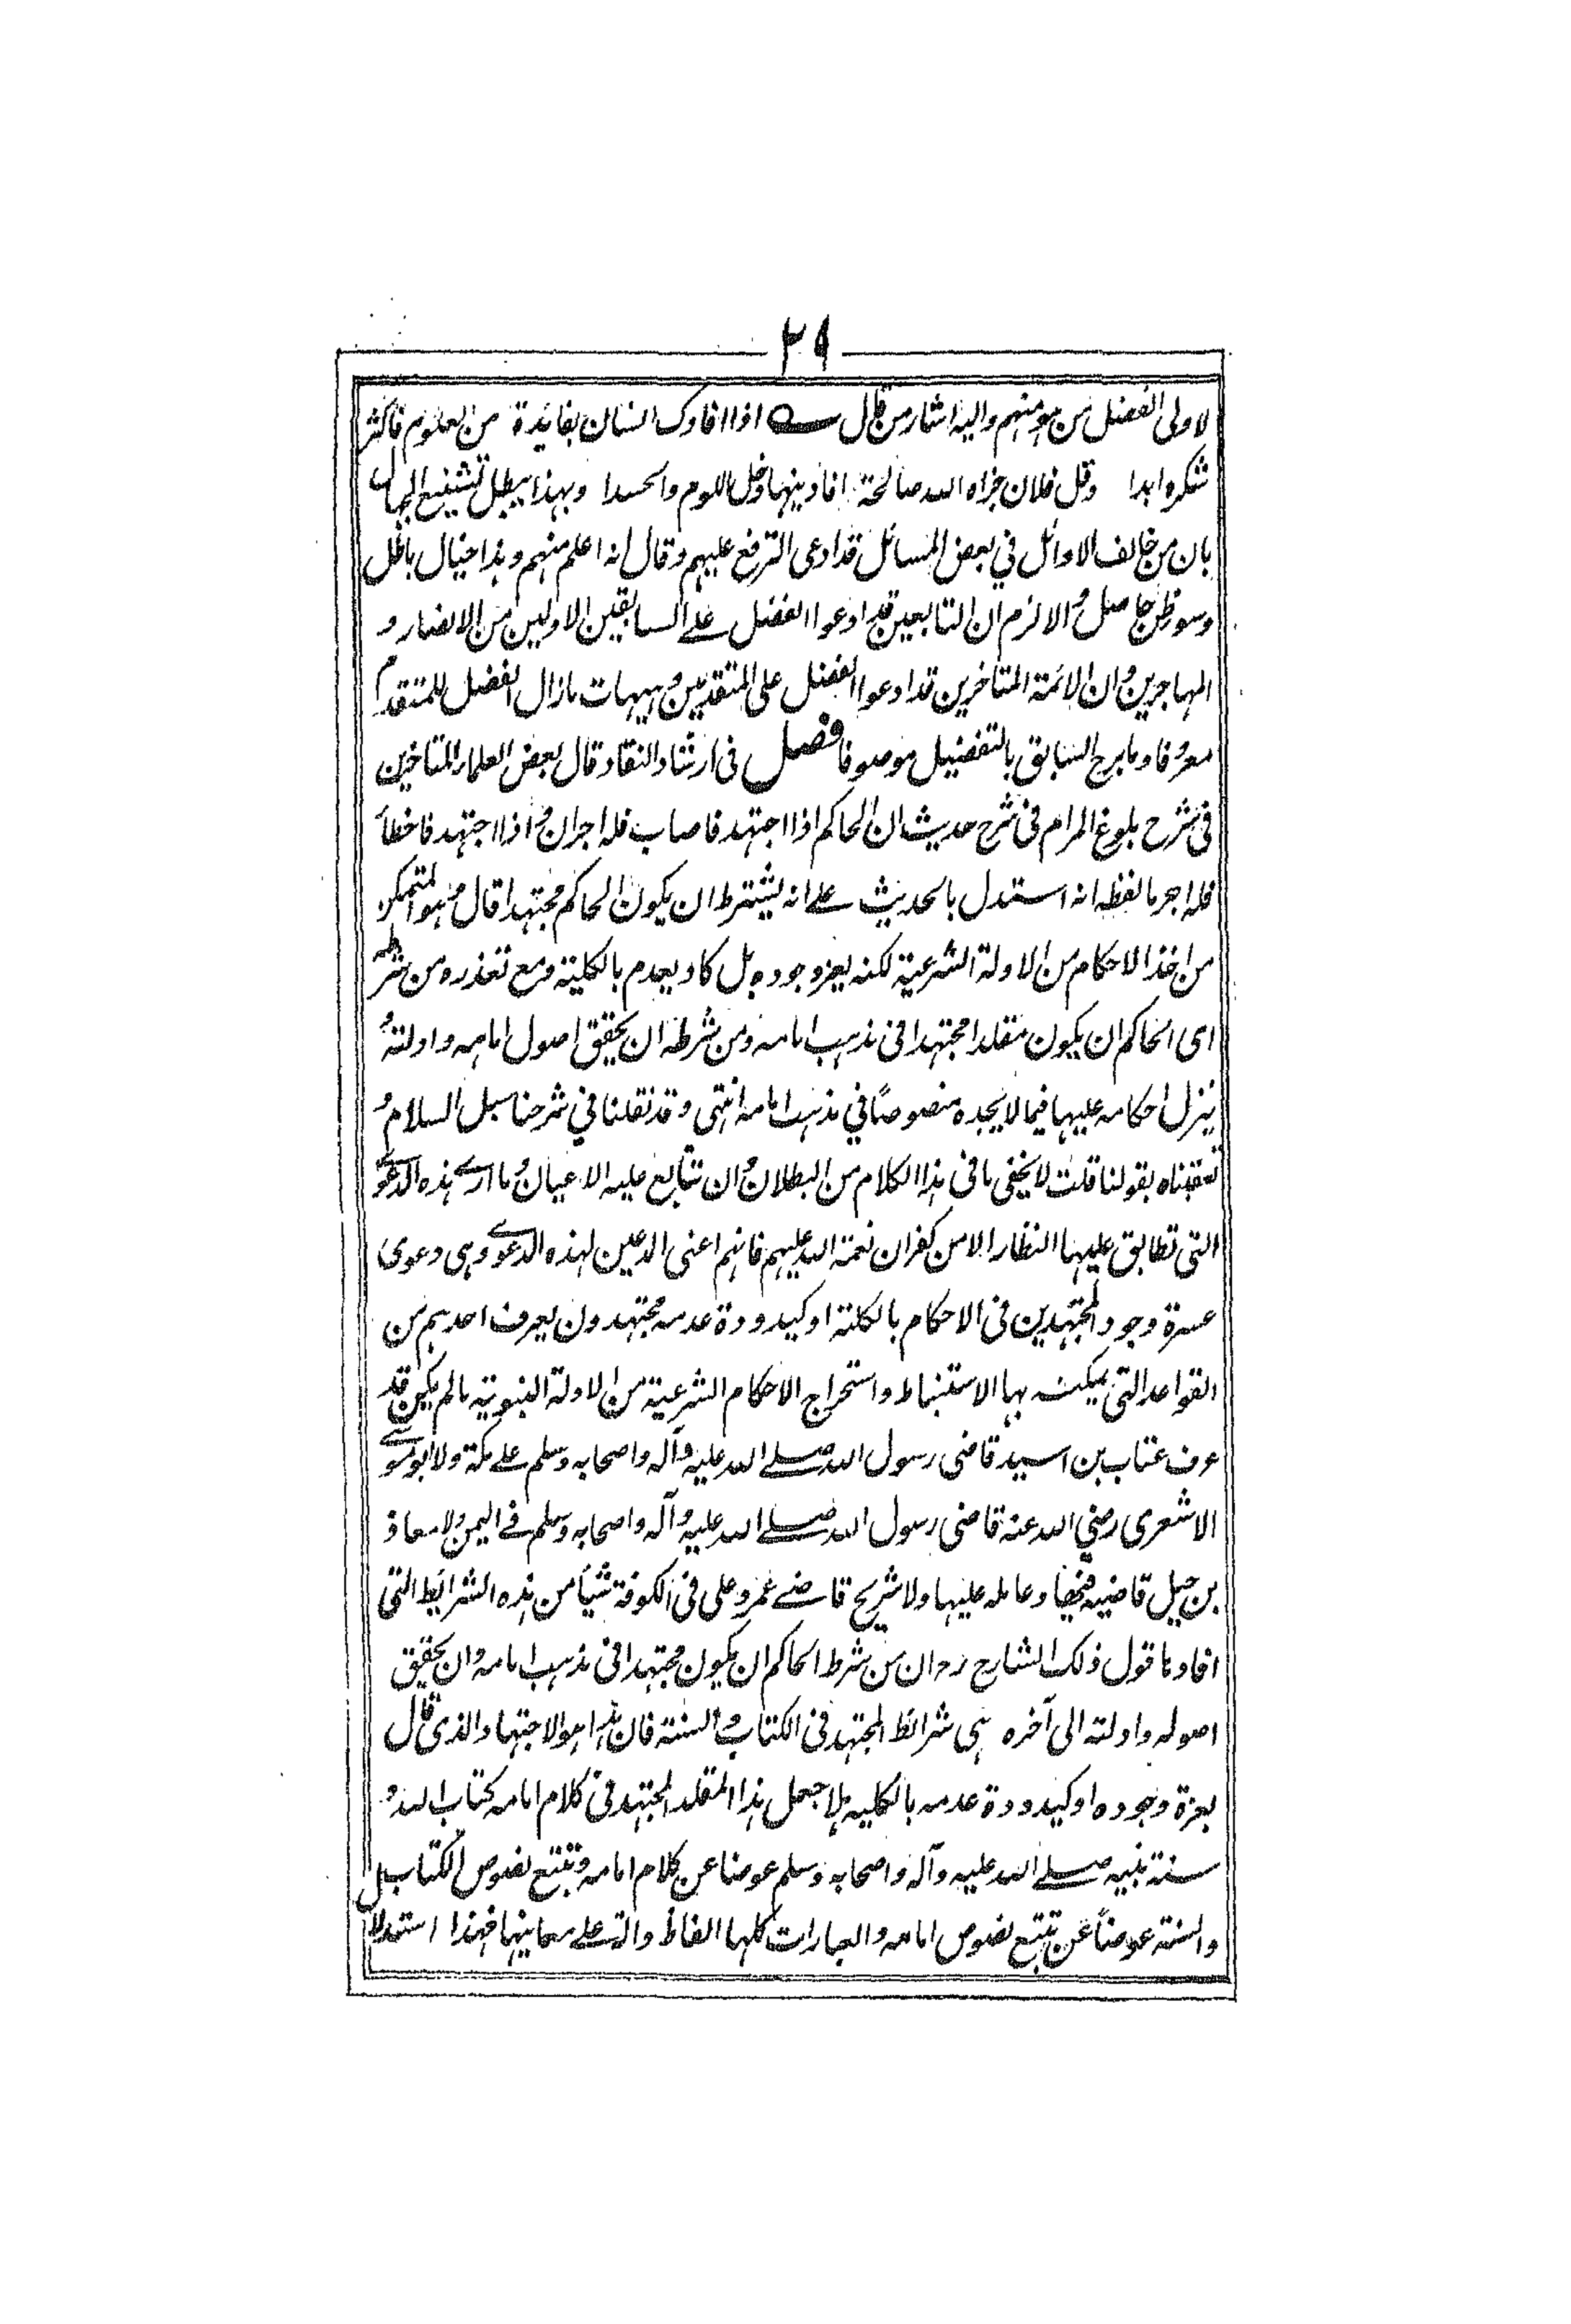 ٣٩
لاولى الفضل من هو منهم واليه اشار من قال اذا افادك انسان بفائدة من العلوم فاكثر
شكره ابدا وقل فلان جزاه الله صالحة افادنيها وخل اللوم والحسدا وبهذا يبطل تشنيع الجهال
بان من خالف الاوائل في بعض المسائل قد ادعى الترفع عليهم وقال انه اعلم منهم وهذا خيال باطل
وسوء ظن حاصل والا لزم ان التابعين قد ادعوا الفضل على السابقين الاولين من الانصار و
المهاجرين وان الائمة المتاخرين قد ادعوا الفضل على المتقدمين وهيهات مازال الفضل للمتقدم
معروفا وما برح السابق بالتفضيل موصوفا فصل فى ارشاد النقاد قال بعض العلماء المتاخرين
فى شرح بلوغ المرام فى شرح حديث ان الحاكم اذا اجتهد فاصاب فله اجران واذا اجتهد فاخطأ
فله اجر ما لفظه انه استدل بالحديث على انه يشترط ان يكون الحاكم مجتهدا قال وهو المتمكن
من اخذ الاحكام من الادلة الشرعية لكنه يعز وجوده بل كاد يعدم بالكلية ومع تعذره من شرطه
اى الحاكم ان يكون مقلدا مجتهدا فى مذهب امامه ومن شرطه ان يحقق اصول امامه وادلته و
ينزل احكامه عليها فيما لا يجده منصوصًا في مذهب امامه انتهى وقد نقلنا في شرحنا سبل السلام و
تعقبناه بقولنا قلت لا يخفى ما فى هذا الكلام من البطلان وان تتابع عليه الاعيان وما ارى هذه الدعوى
التى تطابق عليها النظار الا من كفران نعمة الله عليهم فانهم اعنى المدعين لهذه الدعوى وهى دعوى
عسرة وجود المجتهدين فى الاحكام بالكلتة اوكيدودة عدمه مجتهدون يعرف احدهم من
القواعد التى يمكنه بها الاستنباط واستخراج الاحكام الشرعية من الادلة النبوية مالم يكن قد
عرف عتاب بن اسيد قاضى رسول الله صلى الله عليه وآله واصحابه وسلم على مكة ولا ابو موسى
الاشعرى رضي الله عنه قاضى رسول الله صلى الله عليه وآله واصحابه وسلم فى اليمن ولا معاذ
بن جبل قاضيه فيها وعامله عليها ولا شريح قاضى عمر وعلى فى الكوفة شيأ من هذه الشرائط التى
افادها قول ذلك الشارح رح ان من شرط الحاكم ان يكون مجتهدا فى مذهب امامه وان يحقق
اصوله وادلته الى آخره هى شرائط المجتهد فى الكتاب والسنة فان هذا هو الاجتهاد الذى قال
بعزة وجوده اوكيدودة عدمه بالكليه هلا جعل هذا المقلد المجتهد فى كلام امامه كتاب الله و
سنة نبيه صلى الله عليه وآله واصحابه وسلم عوضا عن كلام امامه وتتبع نصوص الكتاب
والسنة عوضاً عن تتبع نصوص امامه والعبارات كلها الفاظ دالة على معانيها فهذا استدلا